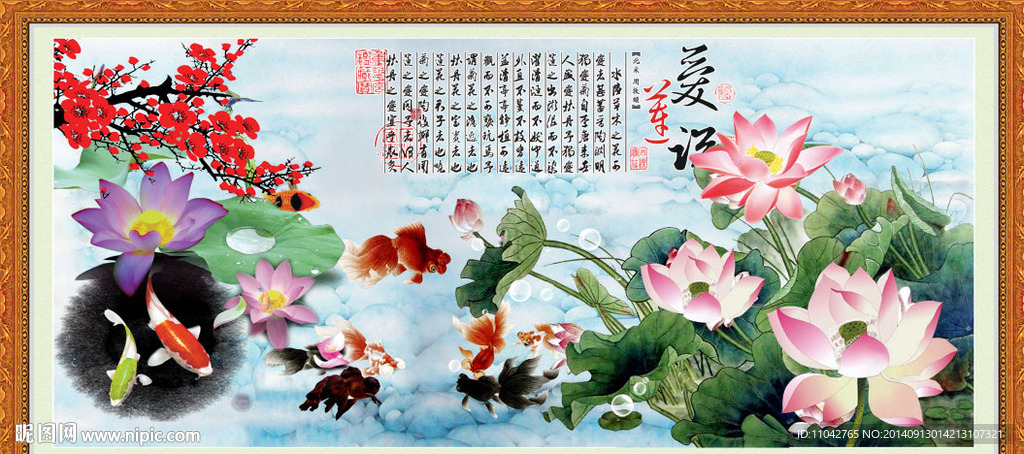 爱莲说
【北宋 周敦颐】
水陆草木之花可
爱者甚蕃晋陶渊明
独爱菊自李唐来世
人盛爱牡丹予独爱
莲之出淤泥而不染
濯清涟而不妖中通
外直不蔓不枝香远
益清亭亭净植可远
观而不可亵玩焉予
谓菊花之隐逸者也
牡丹花之富贵者也
莲花之君子者也噫
菊之爱陶后鲜有闻
莲之爱同予者何人
牡丹之爱宜乎众矣
昵图网 www.nipic.com
ID:11042765 NO:20140913014213107321